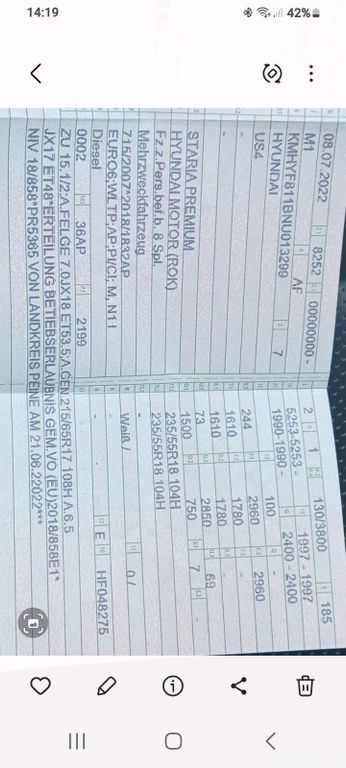 14:19
42%
08.07.2022 8252 00000000-
M1 AF
KMHYF811BNU013299 7
HYUNDAI
US4
-
-
STARIA PREMIUM
HYUNDAI MOTOR (ROK)
Fz.z.Pers.bef.b. 8 Spl.
Mehrzweckfahrzeug
715/2007*2018/1832AP
EURO6;WLTP;AP;PI/CI; M, N1 I
Diesel
0002 36AP 2199
2 1 130/3800 185
5253-5253 - 1997 - 1997
1990-1990 - 2400 - 2400
100 -
244 2960 2960
1610 1780 -
1610 1780 -
73 2850 69
1500 750 7 -
235/55R18 104H
235/55R18 104H
-
Weiß / 0 /
-
- E HF048275
ZU 15.1/2:A.FELGE 7.0JX18 ET53.5/A.GEN.215/65R17 108H A.6.5
JX17 ET48*ERTEILUNG BETIEBSERLAUBNIS GEM.VO (EU)2018/858E1*
NIV 18/858*PR5365 VON LANDKREIS PEINE AM 21.06.22022***